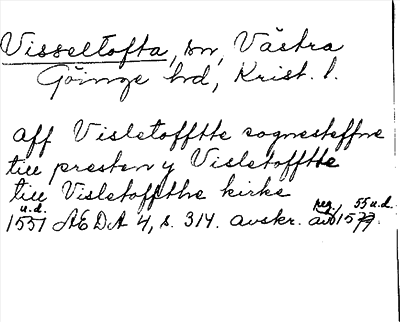 Visseltofta, sn, Västra
Göinge hd, Krist. l.
aff Visletofftte sognesteffne
till presten y Visletofftte
till Visletoffthe kirke
u.d. reg. 55 u.d.
1551 ÆDA 4, s. 314. avskr. av 1577.